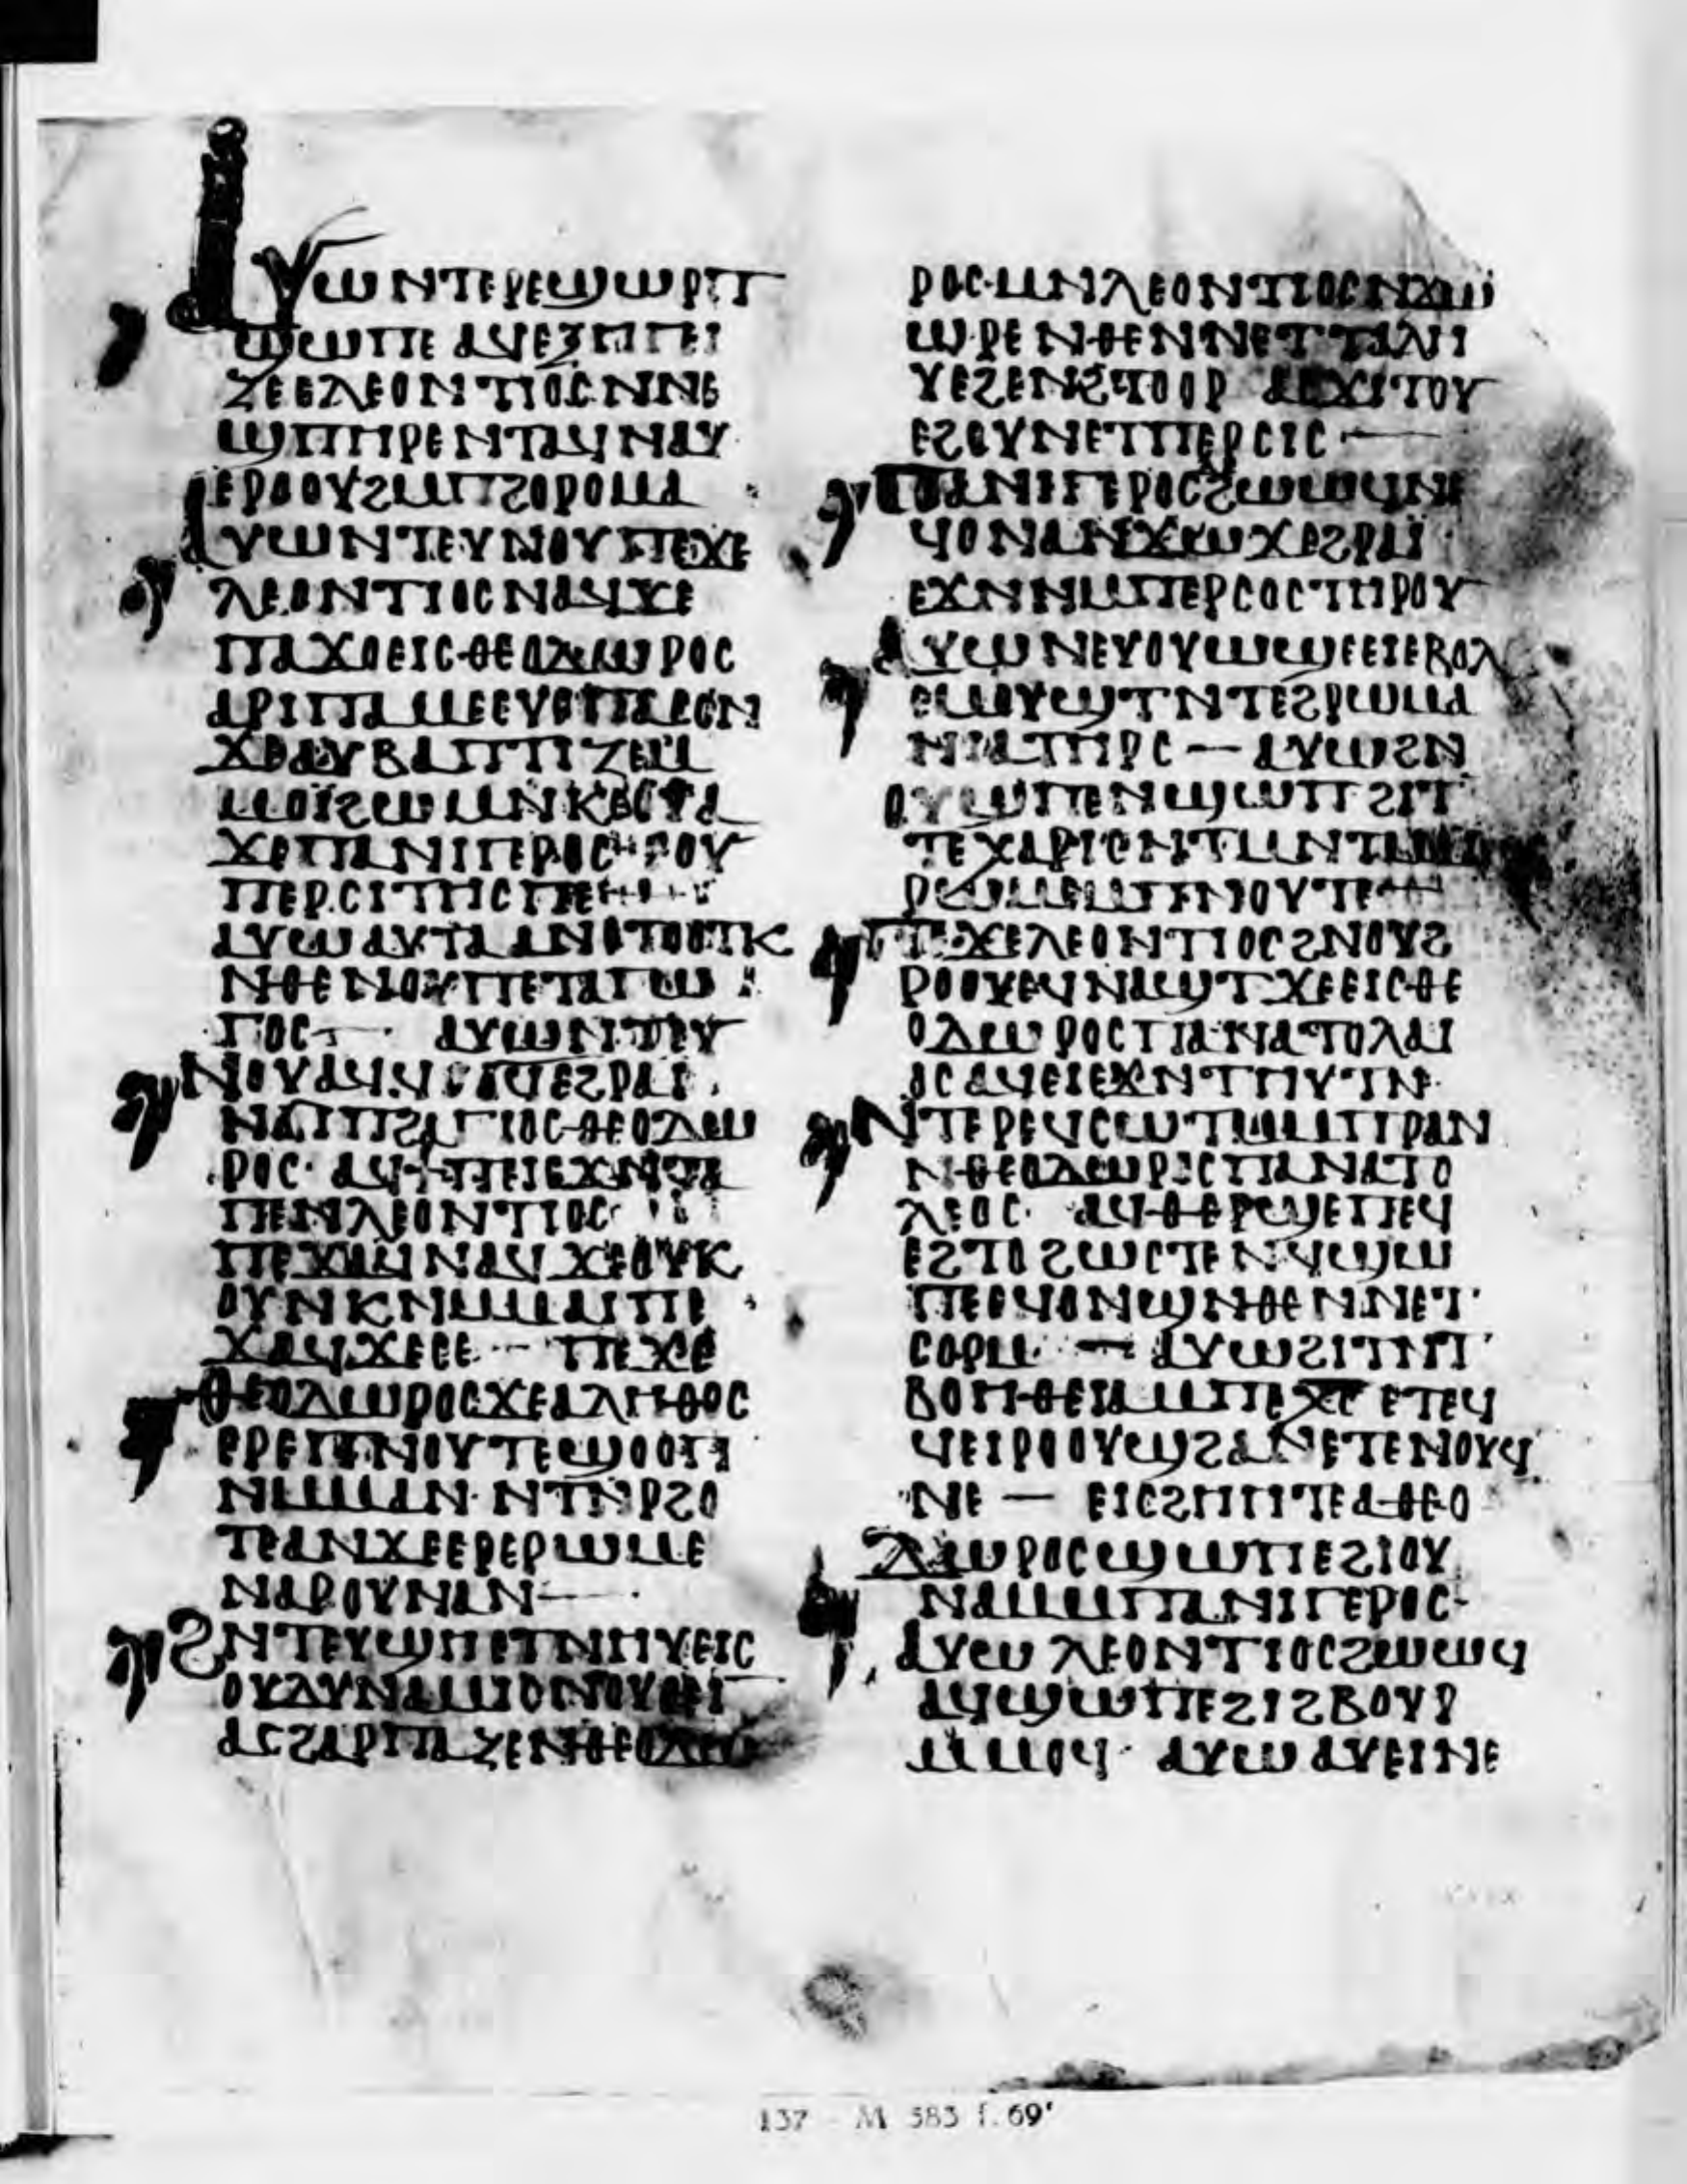 ⲁⲩⲱⲛⲧⲉⲣⲉϣⲱⲣⲡ
ϣⲱⲡⲉ ⲁϥⲉⲝⲏⲅⲉⲓ
ⲍⲉⲉⲗⲉⲟⲛⲧⲓⲟⲥⲛⲛⲉ
ϣⲡⲏⲣⲉⲛⲧⲁϥⲛⲁⲩ
ⲉⲣⲟⲟⲩϩⲙⲡϩⲟⲣⲟⲙⲁ
ⲁⲩⲱⲛⲧⲉⲩⲛⲟⲩⲡⲉϫⲉ
ⲗⲉⲟⲛⲧⲓⲟⲥⲛⲁϥϫⲉ
ⲡⲁϫⲟⲉⲓⲥⲑⲉⲟⲇⲱⲣⲟⲥ
ⲁⲣⲓⲡⲁⲙⲉⲉⲩⲉⲡⲁⲥⲟⲛ
ϫⲉⲁⲩⲃⲁⲡⲧⲓⲍⲉⲙ
ⲙⲟⲓϩⲱⲙⲛⲕⲉⲟⲩⲁ
ϫⲉⲡⲁⲛⲓⲕⲉⲣⲟⲥ
ⲡⲉⲣⲥⲓⲧⲏⲥⲡⲉ
ⲁⲩⲱⲁⲩⲧⲁⲁⲛⲉⲧⲟⲟⲧⲕ
ⲛⲑⲉⲛⲟⲩⲡⲉⲇⲁⲅⲱ
ⲅⲟⲥ ⲁⲩⲱⲛⲧⲉⲩ
ⲛⲟⲩⲁϥ
ⲛϭⲓⲡϩⲁⲅⲓⲟⲥⲑⲉⲟⲇⲱ
ⲣⲟⲥ ⲁϥϯⲡⲉⲓⲉϫⲛⲧⲁ
ⲡⲉⲛⲗⲉⲟⲛⲧⲓⲟⲥ
ⲡⲉϫⲁϥⲛⲁϥϫⲉⲟⲩⲕ
ⲟⲩⲛⲕⲛⲙⲙⲁⲓⲡⲉ
ϫⲁϥϫⲉⲥⲉ ⲡⲉϫⲉ
ⲑⲉⲟⲇⲱⲣⲟⲥϫⲉⲁⲗⲏⲑⲟⲥ
ⲉⲣⲉⲡⲛⲟⲩⲧⲉϣⲟⲟⲡ
ⲛⲙⲙⲁⲛ ⲛⲧⲛⲣϩⲟ
ⲧⲉⲁⲛϫⲉⲉⲣⲉⲣⲱⲙⲉ
ⲛⲁⲣⲟⲩⲛⲁⲛ
ϩⲛⲧⲉⲩϣⲏⲉⲧⲙⲙⲁⲩⲉⲓⲥ
ⲟⲩⲇⲩⲛⲁⲙⲓⲥ
ⲁⲥϩⲁⲣⲡⲁⲍⲉⲛⲑⲉⲟⲇⲱ
ⲣⲟⲥⲙⲛⲗⲉⲟⲛⲧⲓⲟⲥ
ⲱⲣⲉ ⲛⲑⲉⲛⲛⲉⲧⲧⲁⲗⲏ
ⲩⲉϩⲉⲛϩⲧⲟⲟⲣ ⲁⲥϫⲓⲧⲟⲩ
ⲉϩⲟⲩⲛⲉⲧⲡⲉⲣⲥⲓⲥ
ⲡⲁⲛⲓⲕⲉⲣⲟⲥϩⲱⲱϥⲛⲉ
ϥⲟⲛⲁⲛϫⲱϫⲉϩⲣⲁⲓ
ⲉϫⲛⲛⲙⲡⲉⲣⲥⲟⲥⲧⲏⲣⲟⲩ
ⲁⲩⲱⲛⲉⲩⲟⲩⲱϣⲉⲉⲓⲉⲃⲟⲗ
ⲉⲙⲟⲩϣⲧⲛⲧⲉϩⲣⲱⲙⲁ
ⲛⲓⲁⲧⲏⲣⲥ ⲁⲩⲱϩⲛ
ⲟⲩϣⲡⲛϣⲱⲡ ϩⲓⲧ
ⲧⲉⲭⲁⲣⲓⲥⲛⲧⲙⲛⲧⲙⲁⲓ
ⲣⲱⲙⲉⲙⲡⲛⲟⲩⲧⲉ
ⲡⲉϫⲉⲗⲉⲟⲛⲧⲓⲟⲥϩⲛⲟⲩϩ
ⲣⲟⲟⲩⲉϥⲛⲁϣⲧϫⲉⲉⲓⲥⲑⲉ
ⲟⲇⲱⲣⲟⲥⲡⲁⲛⲁⲧⲟⲗⲁⲓ
ⲟⲥⲁϥⲉⲓⲉϫⲛⲧⲏⲩⲧⲛ
ⲛⲧⲉⲣⲉϥⲥⲱⲧⲙⲙⲡⲣⲁⲛ
ⲛⲑⲉⲟⲇⲱⲣⲟⲥⲡⲁⲛⲁⲧⲟ
ⲗⲉⲟⲥ ⲁϥⲑⲉⲣϣⲉⲡⲉϥ
ⲉϩⲧⲟϩⲱⲥⲧⲉⲛϥϣⲱ
ⲡⲉⲉϥⲟⲛϣⲛⲑⲉⲛⲛⲉⲧ
ⲥⲟⲣⲙ ⲁⲩⲱϩⲓⲧⲛⲧ
ⲃⲟⲏⲑⲉⲓⲁⲙⲡⲉⲭⲥ ⲉⲧⲉϥ
ϥⲉⲓⲣⲟⲟⲩϣϩⲁⲛⲉⲧⲉⲛⲟⲩϥ
ⲛⲉ ⲉⲓⲥϩⲏⲏⲧⲉⲁⲑⲉⲟ
ⲇⲱⲣⲟⲥϣⲱⲡⲉϩⲓⲟⲩ
ⲛⲁⲙⲙⲡⲁⲛⲓⲕⲉⲣⲟⲥ
ⲁⲩⲱ ⲗⲉⲟⲛⲧⲓⲟⲥϩⲱⲱϥ
ⲁϥϣⲱⲡⲉϩⲓϩⲃⲟⲩⲣ
ⲙⲙⲟϥ ⲁⲩⲱⲁⲩⲉⲓⲛⲉ
137 - M 583 f. 69ʳ